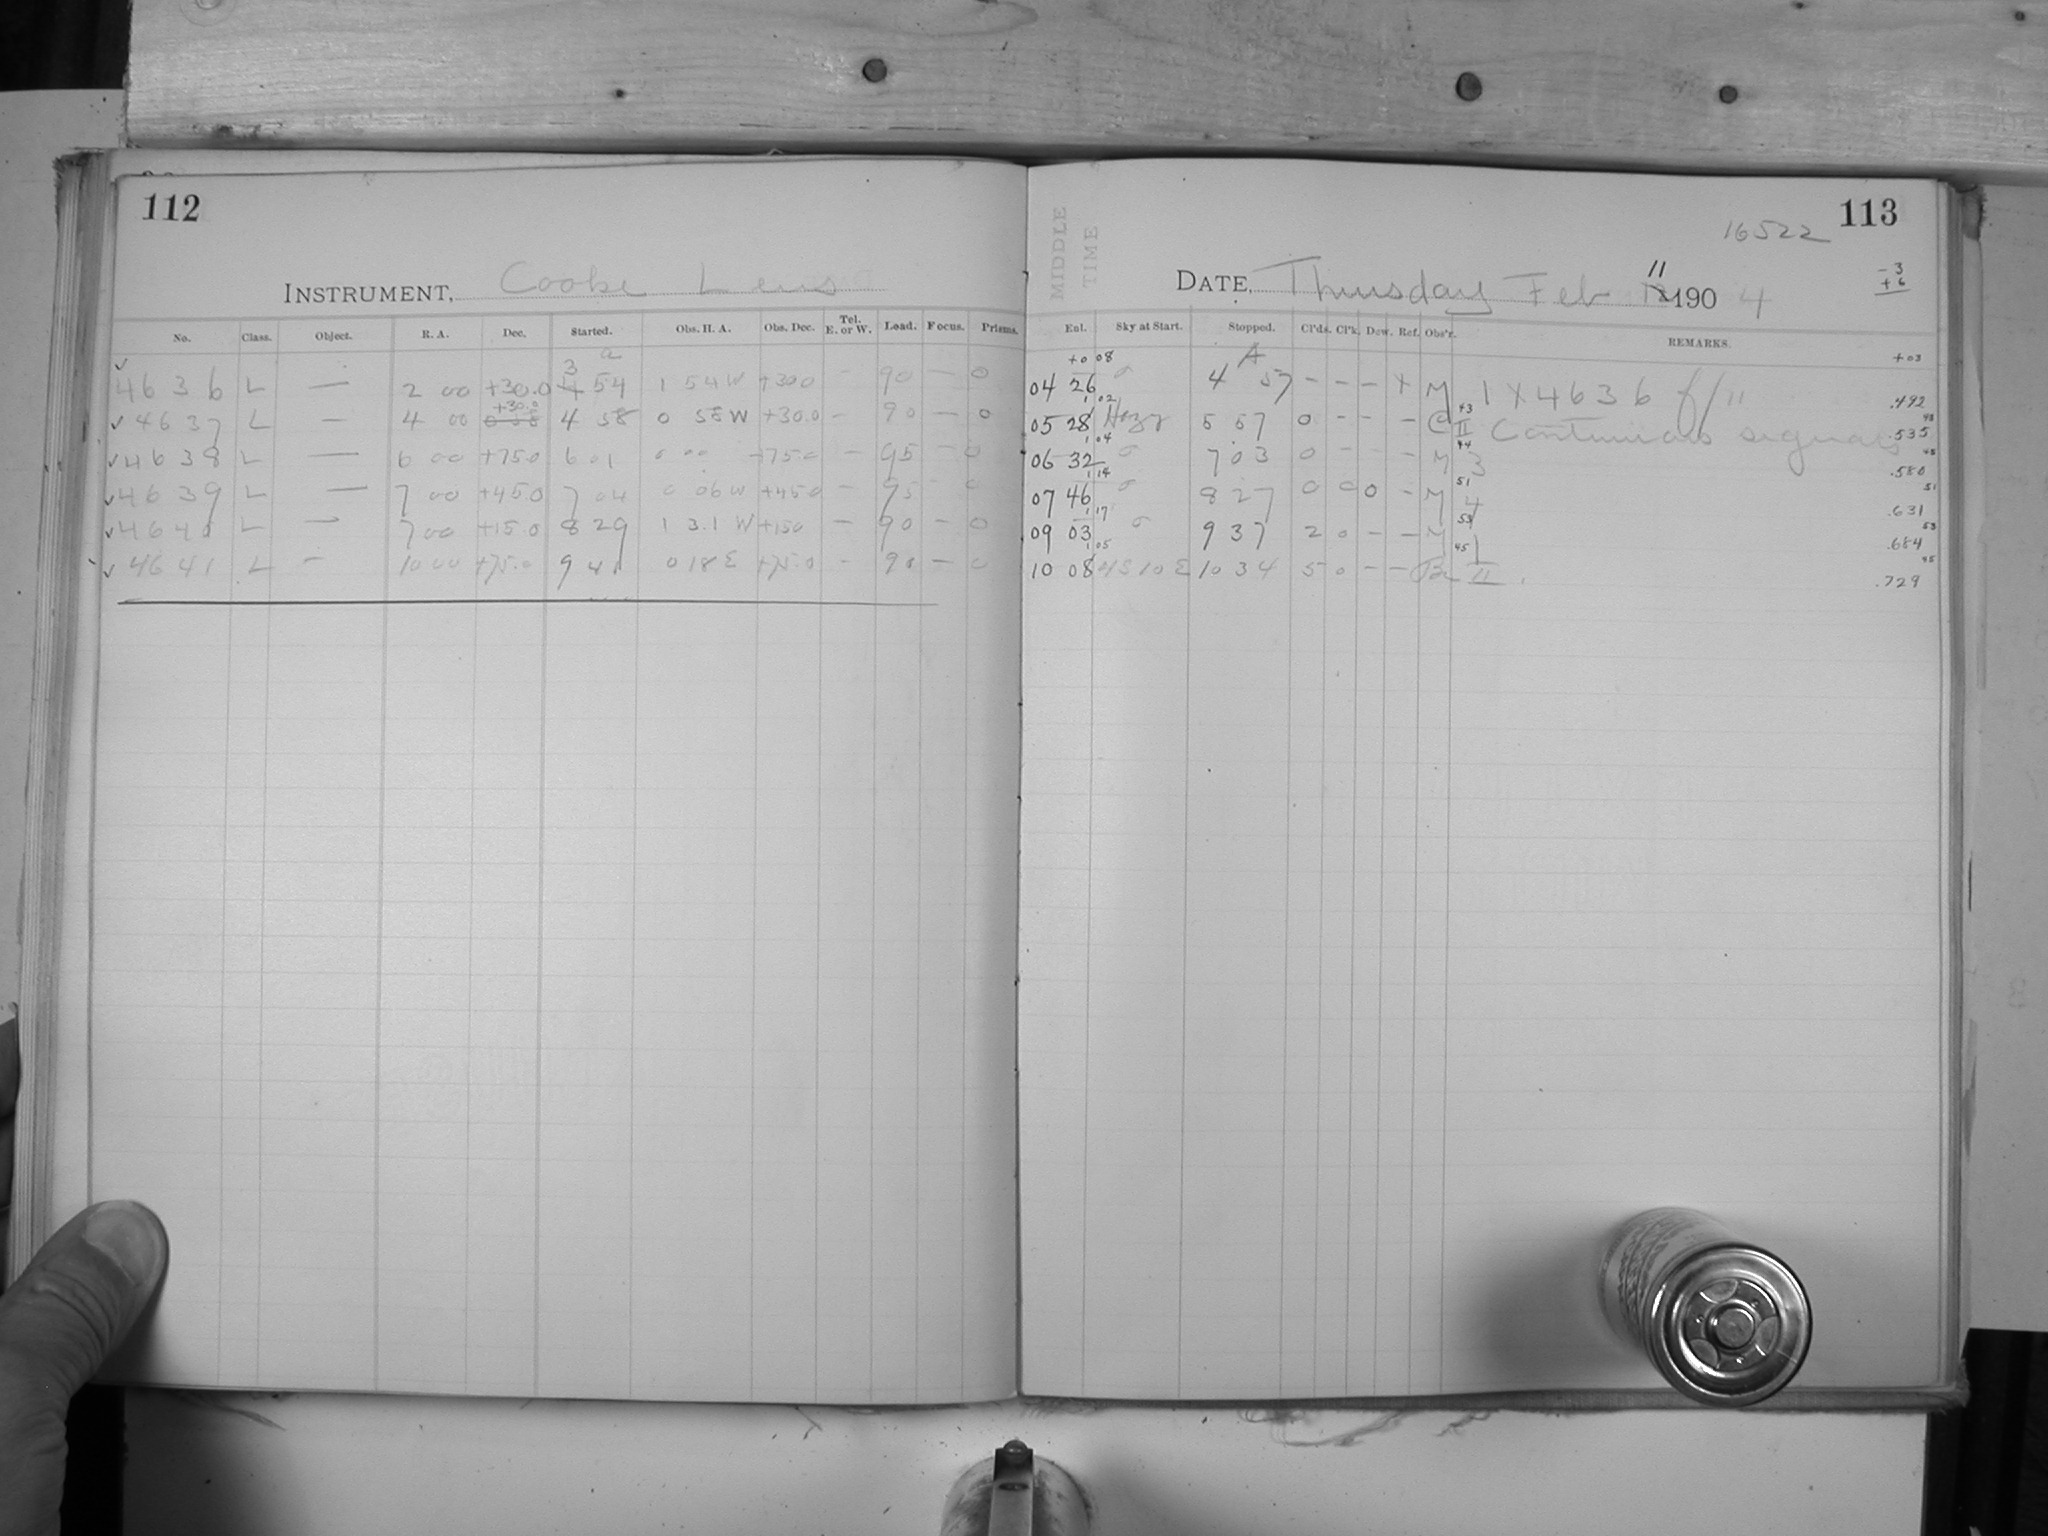 112
INSTRUMENT, Cooke Lens
No. Class. Object. R. A. Dec. Started. Obs. H. A. Obs. Dec. Tel. E. or W. Load. Focus. Prisms.
3 a
✓ 4636 L — 2 00 +30.0 4 54 1 54 W +30.0 - 90 — 0
+30.0
✓ 4637 L — 4 00 0 58 4 58 0 58 W +30.0 - 90 — 0
✓ 4638 L — 6 00 +75.0 6 01 0 00 +75.0 - 95 - 0
✓ 4639 L — 7 00 +45.0 7 04 0 06 W +45.0 - 95 - 0
✓ 4640 L — 7 00 +15.0 8 29 1 31 W +15.0 - 90 - 0
✓ 4641 L — 10 00 +75.0 9 41 0 18 E +75.0 - 90 - 0
113
16522
MIDDLE TIME
DATE, Thursday Feb 11 1904
-3
+6
Enl. Sky at Start. Stopped. Cl'ds. Cl'k. Dew. Ref. Obs'r. REMARKS.
+0 08 A +03
04 26 4 57 - - - x M 1 x 4636 f/11 .492
1 02 43 43
05 28 Hazy 5 57 0 - - - C II Continuous signals .535
1 04 44 45
06 32 7 03 0 - - - M 3 .580
1 14 51 51
07 46 8 27 0 0 0 - M 4 .631
1 17 53 53
09 03 9 37 2 0 - - M 1 .684
1 05 45 45
10 08 10 34 5 0 - - II .729